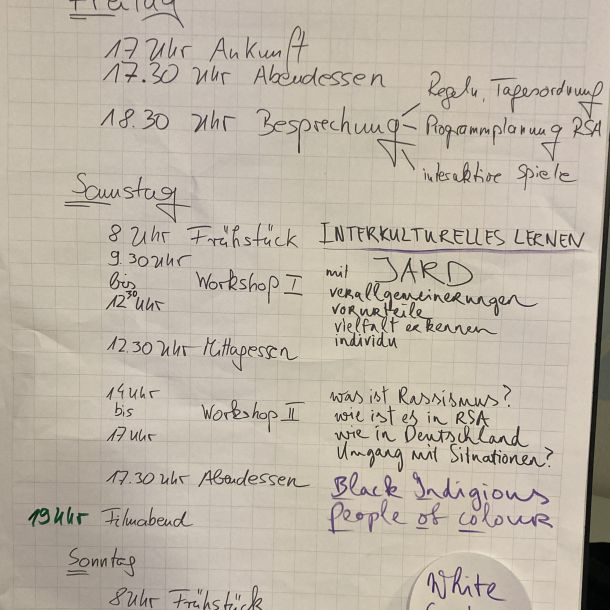 Freitag
17 Uhr Ankunft
17.30 Uhr Abendessen
18.30 Uhr Besprechung
Regeln, Tagesordnung
Programmplanung RSA
interaktive Spiele
Samstag
8 Uhr Frühstück
9.30 Uhr
bis
12 30 Uhr
Workshop I
INTERKULTURELLES LERNEN
mit JARD
verallgemeinerungen
vorurteile
vielfalt erkennen
individu
12.30 Uhr Mittagessen
14 Uhr
bis
17 Uhr
Workshop II
was ist Rassismus?
wie ist es in RSA
wie in Deutschland
Umgang mit Situationen?
17.30 Uhr Abendessen
Black Indigious
People of colour
19 Uhr Filmabend
Sonntag
8 Uhr Frühstück
White